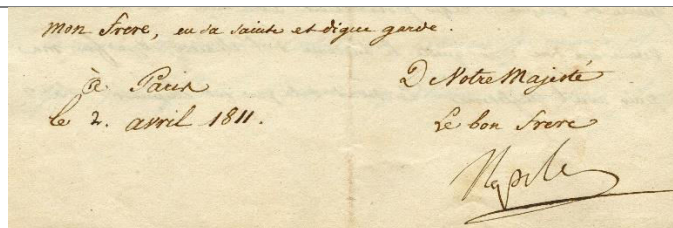 mon frere, en sa sainte et digne garde.
à Paris
le 2. avril 1811.
D Votre Majesté
Le bon frere